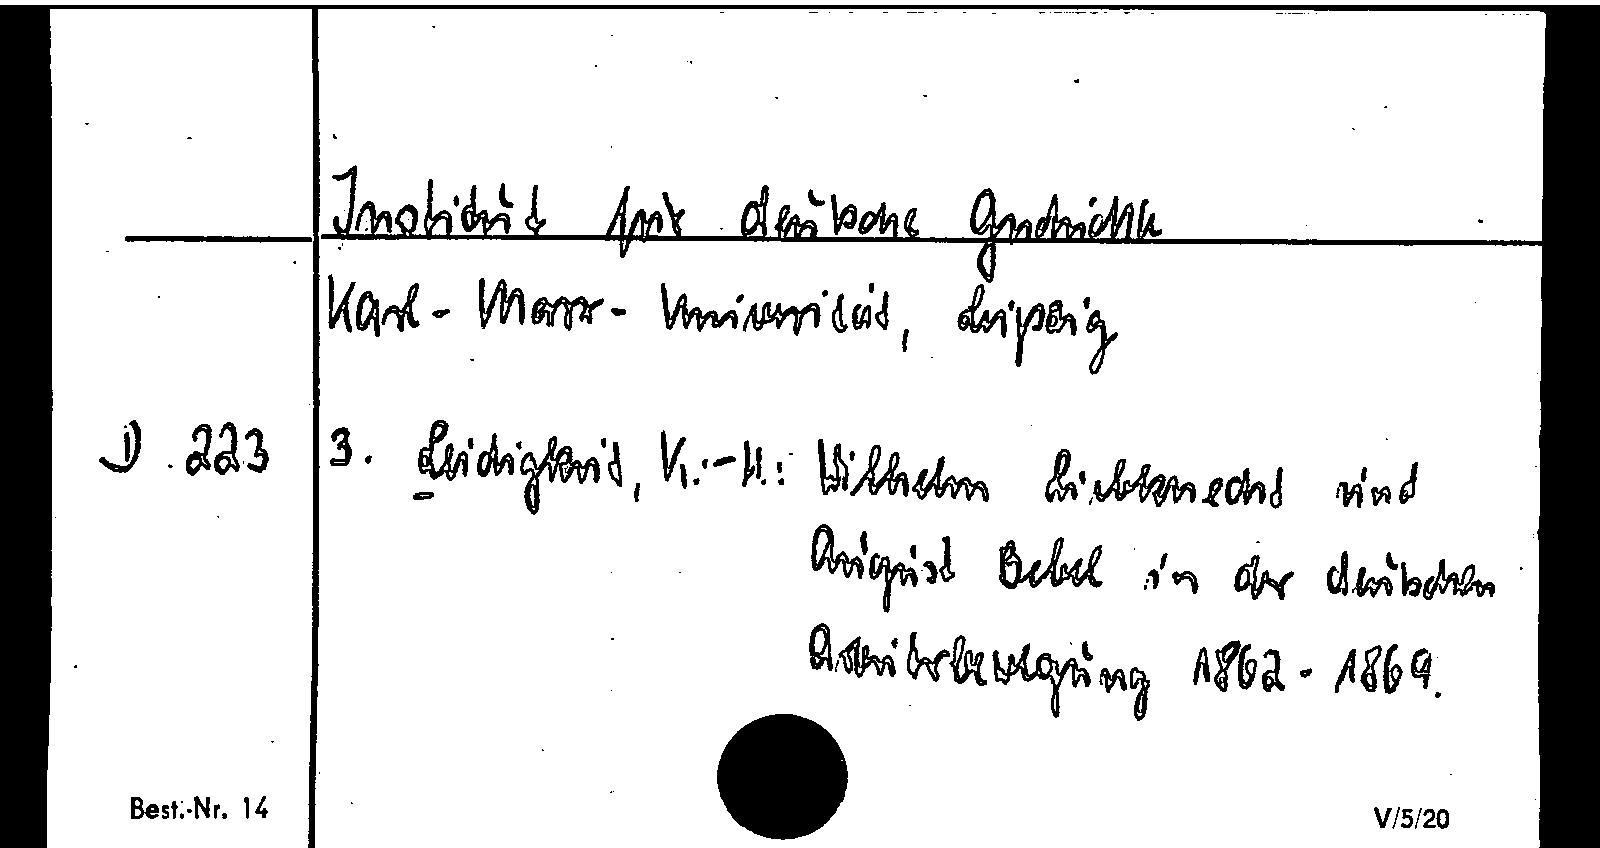 Institut für deutsche Geschichte
Karl-Marx-Universität, Leipzig
D 223 3. Leidigkeit, K.-H.: Wilhelm Liebknecht und
August Bebel in der deutschen
Arbeiterbewegung 1862-1869.
Best.-Nr. 14 V/5/20